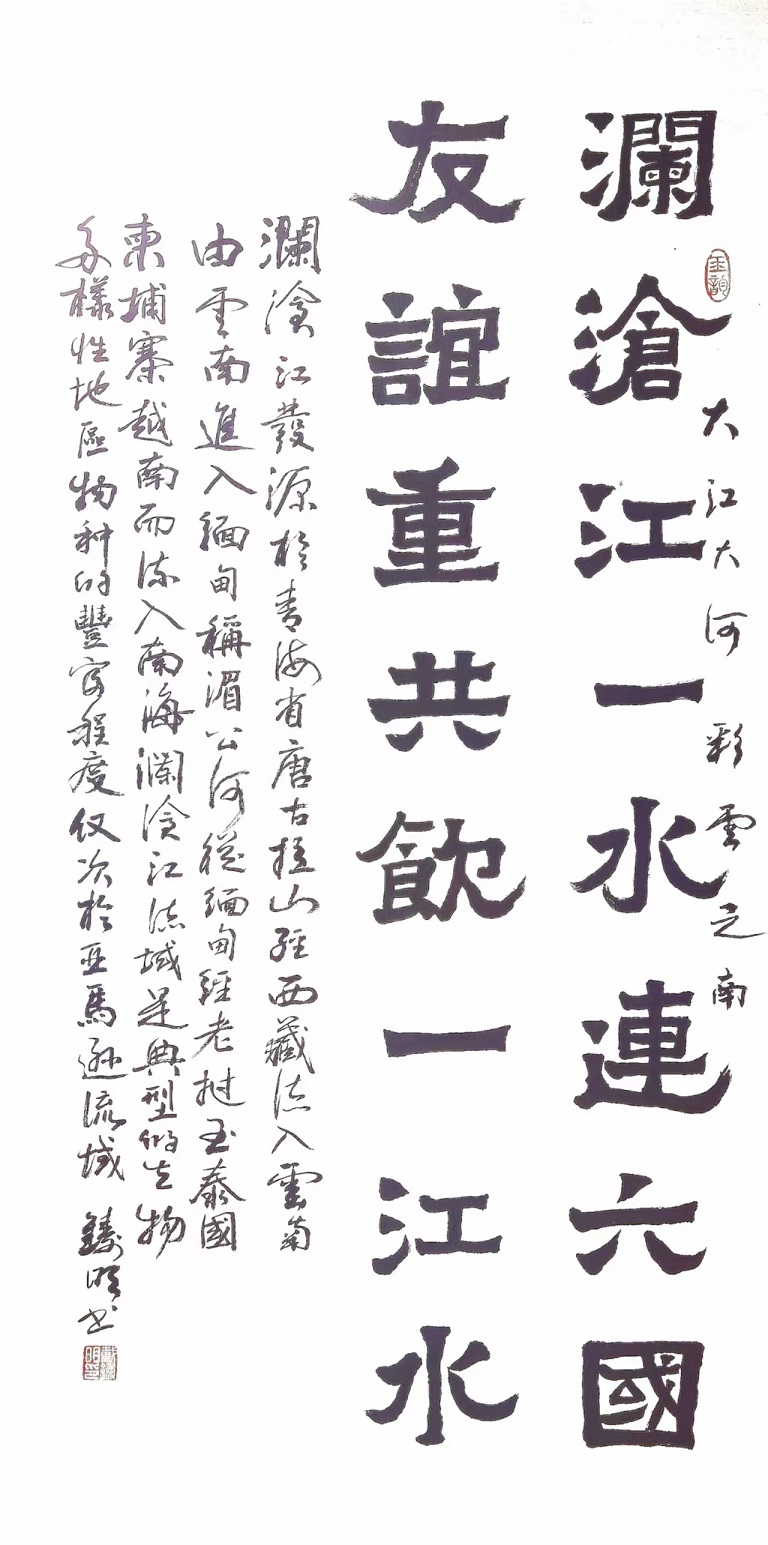 大江大河 彩雲之南
瀾滄江一水連六國
友誼重共飲一江水
瀾滄江發源於青海省唐古拉山經西藏流入雲南
由雲南進入緬甸稱湄公河從緬甸經老挝至泰國
柬埔寨越南而流入南海瀾滄江流域是典型的生物
多樣性地區物种的豐富程度仅次於亚馬遜流域 鑄明书